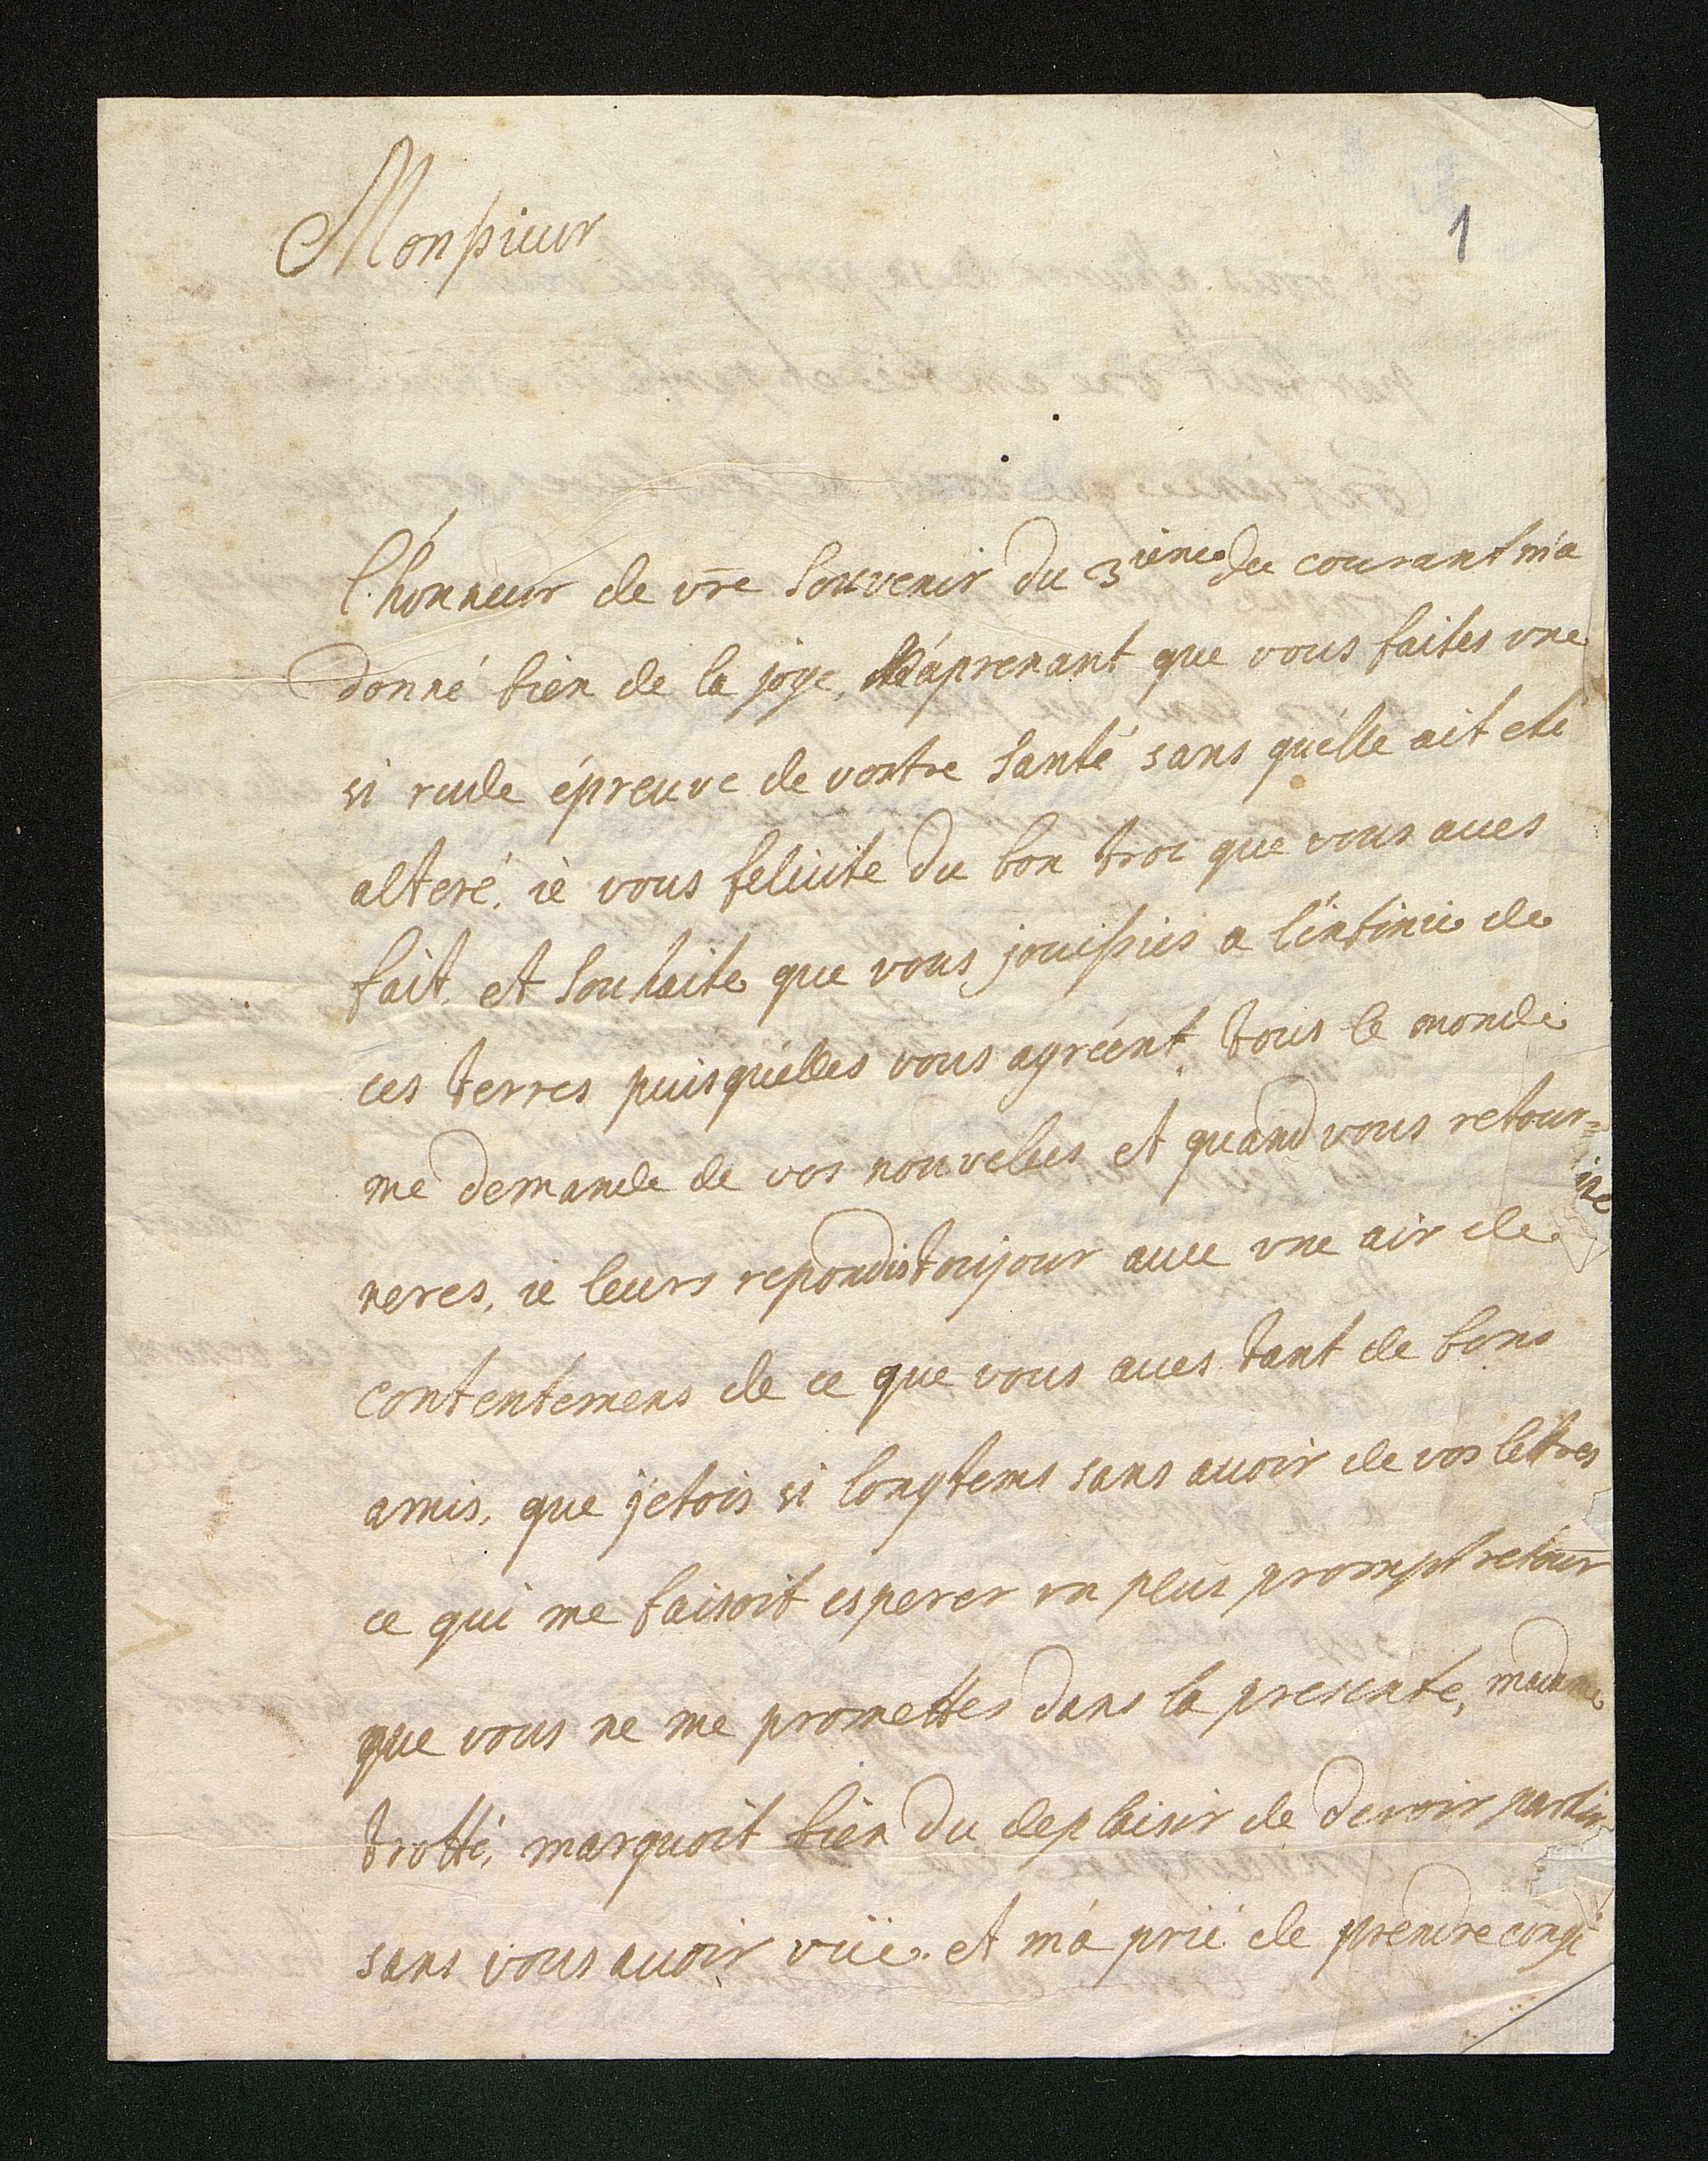 1
Monsieur
l'honneur de vre souvenir du 3ieme du courant m'a
donné bien de la joye, áprenant que vous faites vne
si rude épreuve de vostre santé sans qu'elle ait eté
alteré. ie vous felicite du bon troc que vous aues
fait, et souhaite que vous jouissies a l'entiere de
ces terres puisqu'elles vous agréent, tous le monde
me demande de vos nouvelles et quand vous retour=
neres, ie leurs repondis toujour auec vne air de
contentemens de ce que vous aues tant de bons
amis, que j'etois si longtems sans auoir de vos lettres
ce qui me faisoit esperer vn plus prompt retour
que vous ne me promettes dans la presente, madame
trotti, marquoit bien du deplaisir de devoir partir
sans vous auoir vüe. et m'a prié de prendre congé